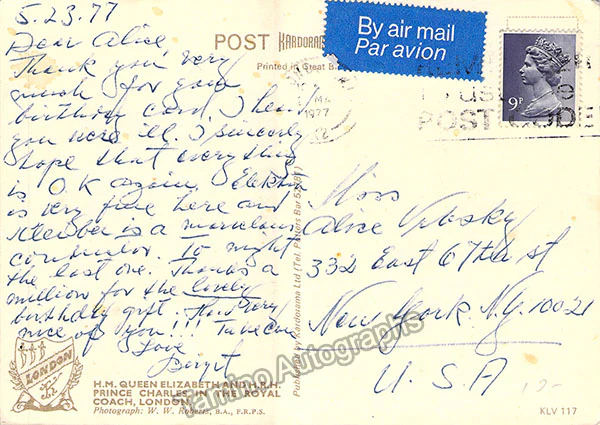 5.23.77
Dear Alice,
Thank you very
much for your
birthday card. I hear
you were ill, I sincerely
hope that everything
is O.K again. Elektra
is very fine here and
Kleiber is a marvelous
conductor. To night
the last one. Thanks a
million for the lovely
birthday gift. How very
nice of you!!! Take care
Love
Birgit
POST KARDORAMA
Printed in Great B
By air mail
Par avion
1977
POST CODE
9P
Published by Kardorama Ltd (Tel. Potters Bar
Miss
Alice
332 East 67th st
New York. N.Y. 10021
U.S.A
LONDON
H.M. QUEEN ELIZABETH AND H.R.H.
PRINCE CHARLES IN THE ROYAL
COACH, LONDON
Photograph: W. W. Roberts, B.A., F.R.P.S.
KLV 117
Tamino Autographs